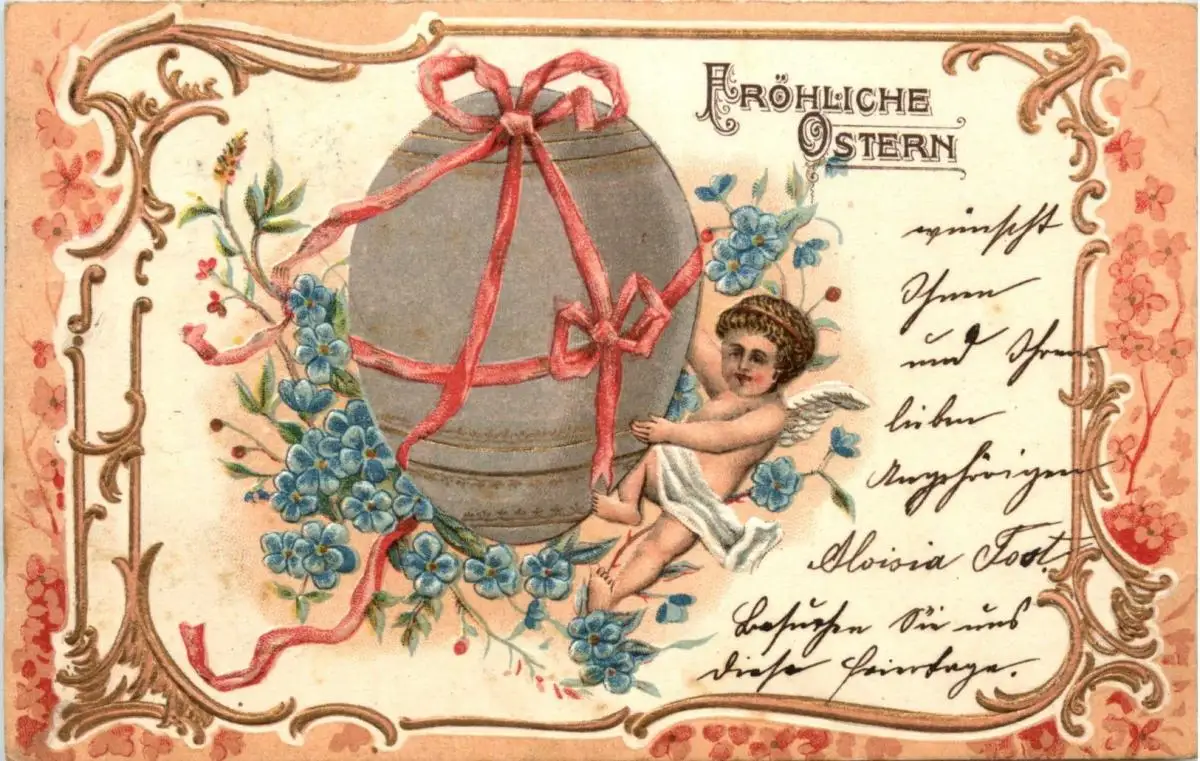 FRÖHLICHE
OSTERN
wünscht
Ihnen
und Ihren
lieben
Angehörigen
Aloisia Tost.
Besuchen Sie uns
diese Feiertage.